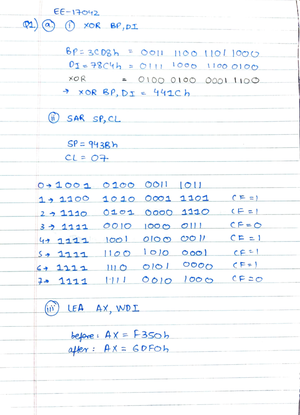 EE-17042
Q1) a) i) XOR BP,DI
BP = 3CD8h = 0011 1100 1101 1000
DI = 78C4h = 0111 1000 1100 0100
XOR = 0100 0100 0001 1100
→ XOR BP,DI = 441Ch
ii) SAR SP,CL
SP = 943Bh
CL = 07
0 → 1001 0100 0011 1011
1 → 1100 1010 0001 1101 CF = 1
2 → 1110 0101 0000 1110 CF = 1
3 → 1111 0010 1000 0111 CF = 0
4 → 1111 1001 0100 0011 CF = 1
5 → 1111 1100 1010 0001 CF = 1
6 → 1111 1110 0101 0000 CF = 1
7 → 1111 1111 0010 1000 CF = 0
iii) LEA AX, WDI
before: AX = F350h
after: AX = GDF0h